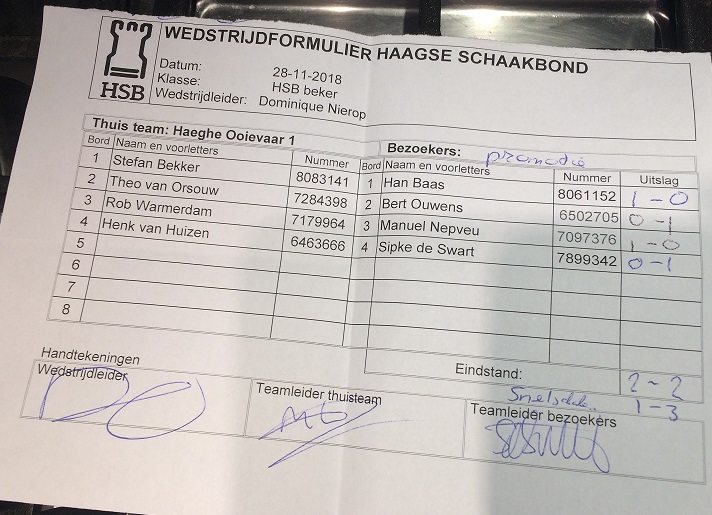 WEDSTRIJDFORMULIER HAAGSE SCHAAKBOND
HSB
Datum: 28-11-2018
Klasse: HSB beker
Wedstrijdleider: Dominique Nierop
Thuis team: Haeghe Ooievaar 1 Bezoekers: promotie
Bord Naam en voorletters Nummer Bord Naam en voorletters Nummer Uitslag
1 Stefan Bekker 8083141 1 Han Baas 8061152 1-0
2 Theo van Orsouw 7284398 2 Bert Ouwens 6502705 0-1
3 Rob Warmerdam 7179964 3 Manuel Nepveu 7097376 1-0
4 Henk van Huizen 6463666 4 Sipke de Swart 7899342 0-1
5
6
7
8
Eindstand: 2-2
1-3
Handtekeningen
Wedstrijdleider Teamleider thuisteam Teamleider bezoekers